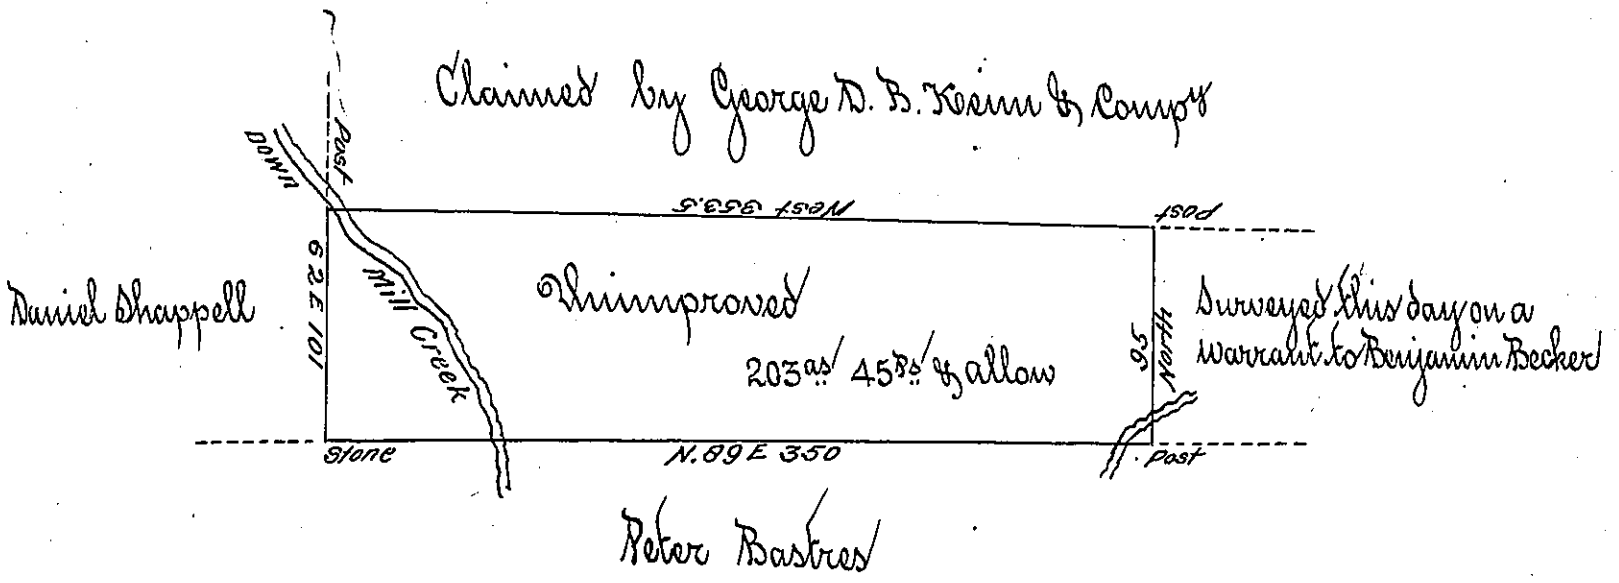 Claimed by George D. B. Keim & Compy
Down
Post
West 353.5
Post
Daniel Shappell
S 2 E 101
Mill Creek
Unimproved
203as 45ps & allow
North
95
Surveyed this day on a
warrant to Benjamin Becker
Stone
N. 89 E 350
Post
Peter Bastres